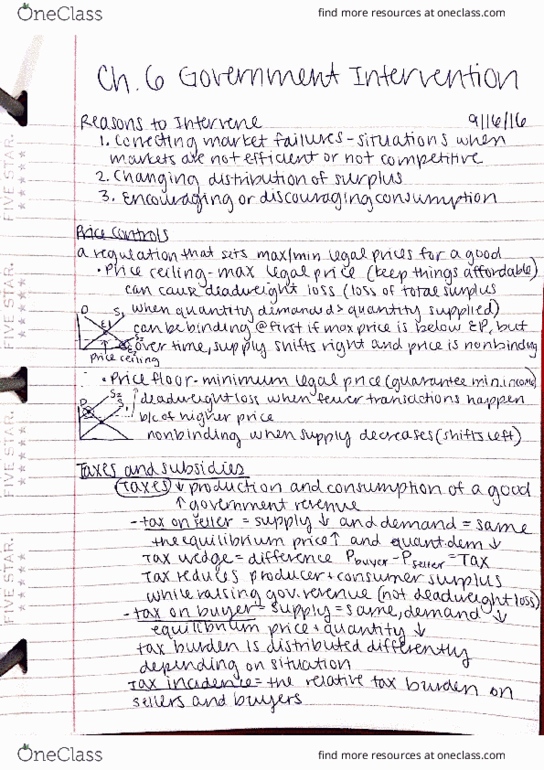 OneClass
find more resources at oneclass.com
Ch. 6 Government Intervention
Reasons to Intervene 9/16/16
1. Correcting market failures - situations when
markets are not efficient or not competitive
2. Changing distribution of surplus
3. Encouraging or discouraging consumption
Price Controls
a regulation that sets max/min legal prices for a good
• Price ceiling - max legal price (keep things affordable)
can cause deadweight loss (loss of total surplus
when quantity demanded > quantity supplied)
can be binding @ first if max price is below EP, but
over time, supply shifts right and price is nonbinding
D S1
E1
S2
price ceiling
• Price floor - minimum legal price (guarantee min. income)
deadweight loss when fewer transactions happen
b/c of higher price
nonbinding when supply decreases (shifts left)
S2
S1
Taxes and subsidies
Taxes ↓ production and consumption of a good
↑ government revenue
- tax on seller = supply ↓ and demand = same
the equilibrium price ↑ and quant. dem ↓
Tax wedge = difference Pbuyer - Pseller = Tax
Tax reduces producer + consumer surplus
while raising gov. revenue (not deadweight loss)
- tax on buyer - supply = same, demand ↓
equilibrium price + quantity ↓
tax burden is distributed differently
depending on situation
Tax incidence = the relative tax burden on
sellers and buyers
FIVE STAR.
FIVE STAR.
FIVE STAR.
FIVE STAR.
OneClass
find more resources at oneclass.com